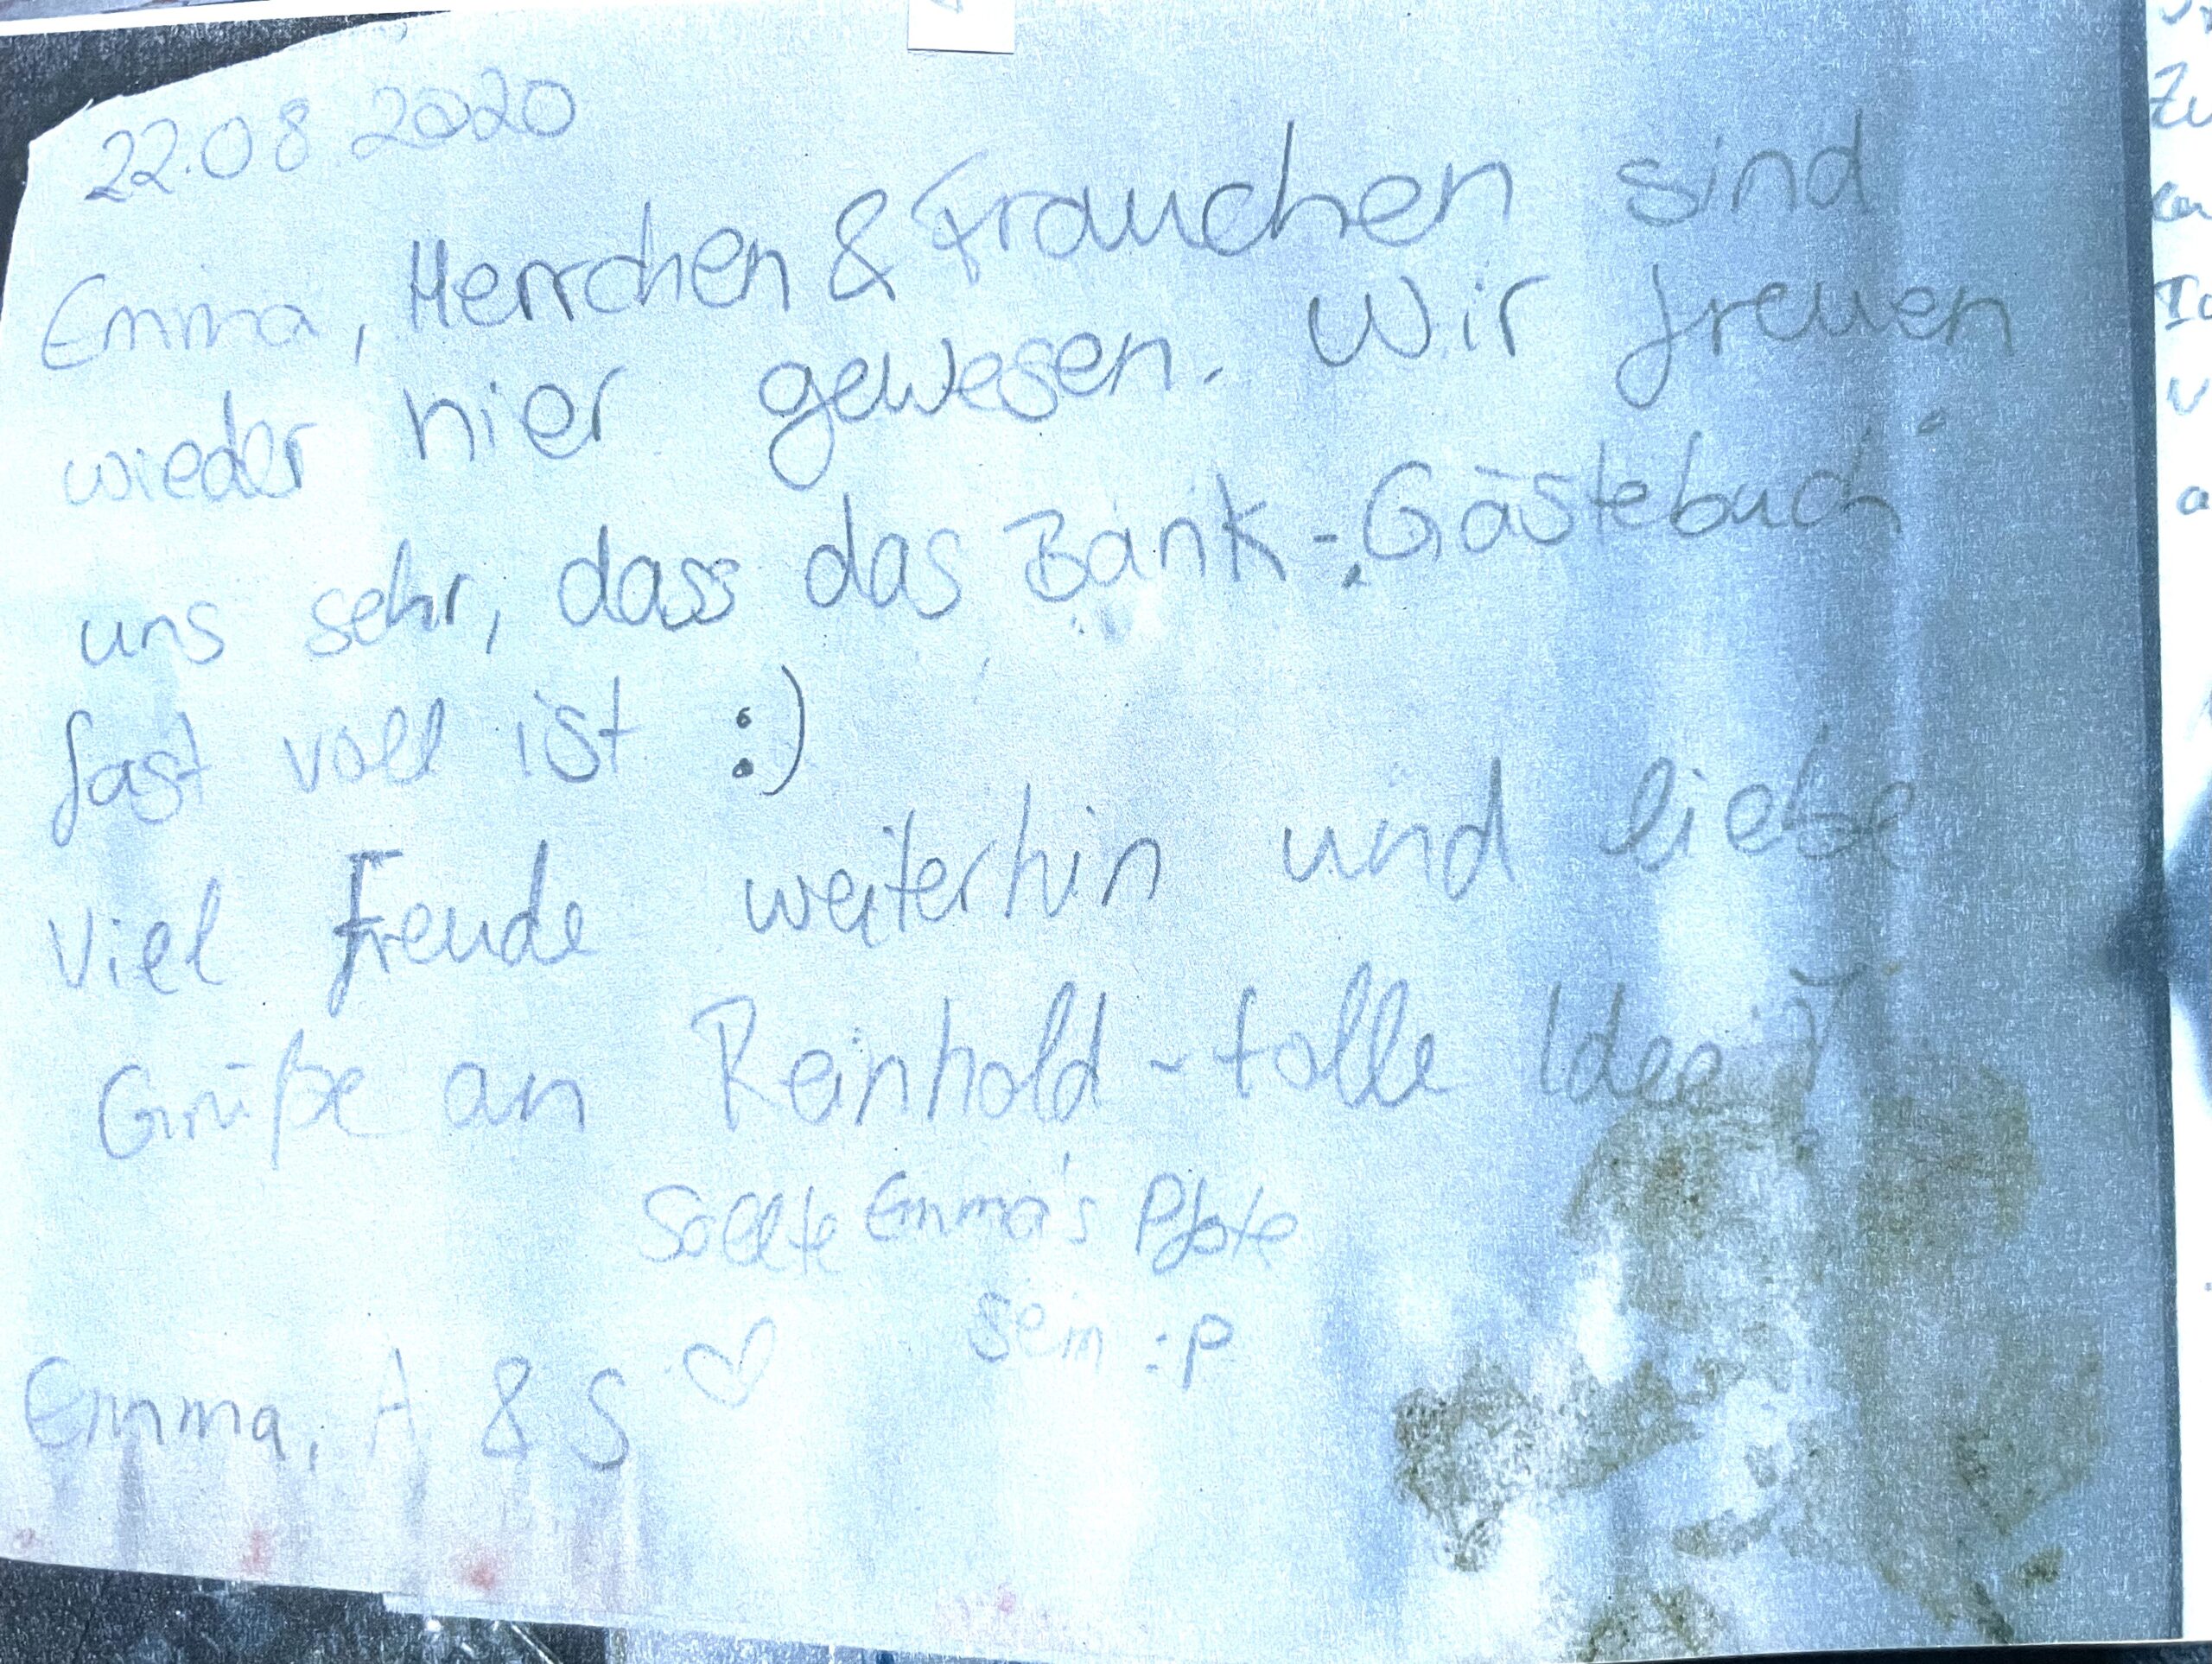 22.08.2020
Emma, Herrchen & Frauchen sind
wieder hier gewesen. Wir freuen
uns sehr, dass das Bank-„Gästebuch"
fast voll ist :)
Viel Freude weiterhin und liebe
Grüße an Reinhold - tolle Idee
Sollte Emma's Pfote
sein :P
Emma, A & S ♡
Zu